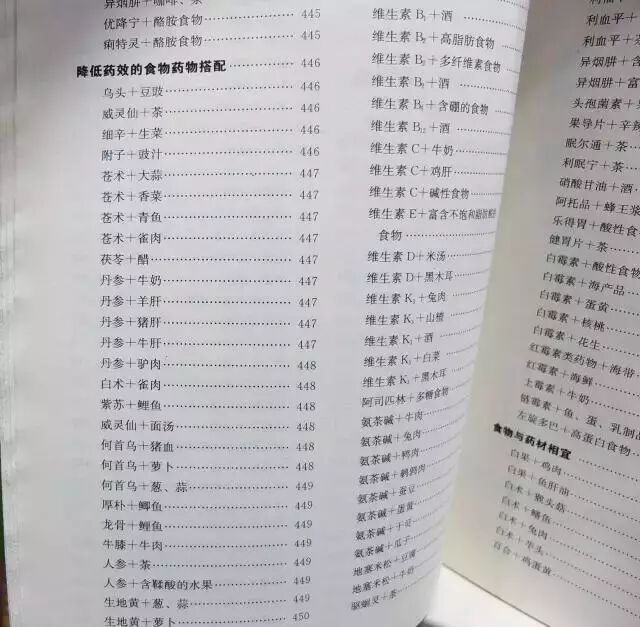 异烟肼＋咖啡、茶
优降宁＋酪胺食物 445
痢特灵＋酪胺食物 445
降低药效的食物药物搭配 446
乌头＋豆豉 446
威灵仙＋茶 446
细辛＋生菜 446
附子＋豉汁 446
苍术＋大蒜 447
苍术＋香菜 447
苍术＋青鱼 447
苍术＋雀肉 447
茯苓＋醋 447
丹参＋牛奶 447
丹参＋羊肝 447
丹参＋猪肝 447
丹参＋牛肝 447
丹参＋驴肉 448
白术＋雀肉 448
紫苏＋鲤鱼 448
威灵仙＋面汤 448
何首乌＋猪血 448
何首乌＋萝卜 448
何首乌＋葱、蒜 449
厚朴＋鲫鱼 449
龙骨＋鲤鱼 449
牛膝＋牛肉 449
人参＋茶 449
人参＋含鞣酸的水果 449
生地黄＋葱、蒜 449
生地黄＋萝卜 450
维生素 B₁＋酒
维生素 B₂＋高脂肪食物
维生素 B₂＋多纤维素食物
维生素＋酒
维生素＋含硼的食物
维生素 B₁₂＋酒
维生素 C＋牛奶
维生素 C＋鸡肝
维生素 C＋碱性食物
维生素 E＋富含不饱和脂肪酸
食物
维生素 D＋米汤
维生素 D＋黑木耳
维生素 K＋兔肉
维生素 K＋山楂
维生素 K＋酒
维生素 K＋白菜
维生素 K＋黑木耳
阿司匹林＋多糖食物
氨茶碱＋牛肉
氨茶碱＋兔肉
氨茶碱＋鸭肉
氨茶碱＋鹌鹑肉
氨茶碱＋蚕豆
氨茶碱＋蛋黄
氨茶碱＋干豆
氨茶碱＋瓜子
地塞米松＋豆腐
地塞米松＋牛奶
驱蛔灵＋茶
利血平＋
利血平＋
异烟肼＋
异烟肼＋含
头孢菌素＋果
果导片＋辛辣
眠尔通＋茶
利眠宁＋茶
硝酸甘油＋酒
阿托品＋蜂王浆
乐得胃＋酸性食
健胃片＋茶
白霉素＋酸性食物
白霉素＋海产品
白霉素＋蛋黄
白霉素＋核桃
白霉素＋花生
红霉素类药物＋海带
红霉素＋海鲜
土霉素＋牛奶
链霉素＋鱼、蛋、乳制品
左旋多巴＋高蛋白食物
食物与药材相宜
白果＋鸡肉
白果＋鱼肝油
白术＋猴头菇
白术＋鳝鱼
白术＋兔肉
白术＋芋头
百合＋鸡蛋黄